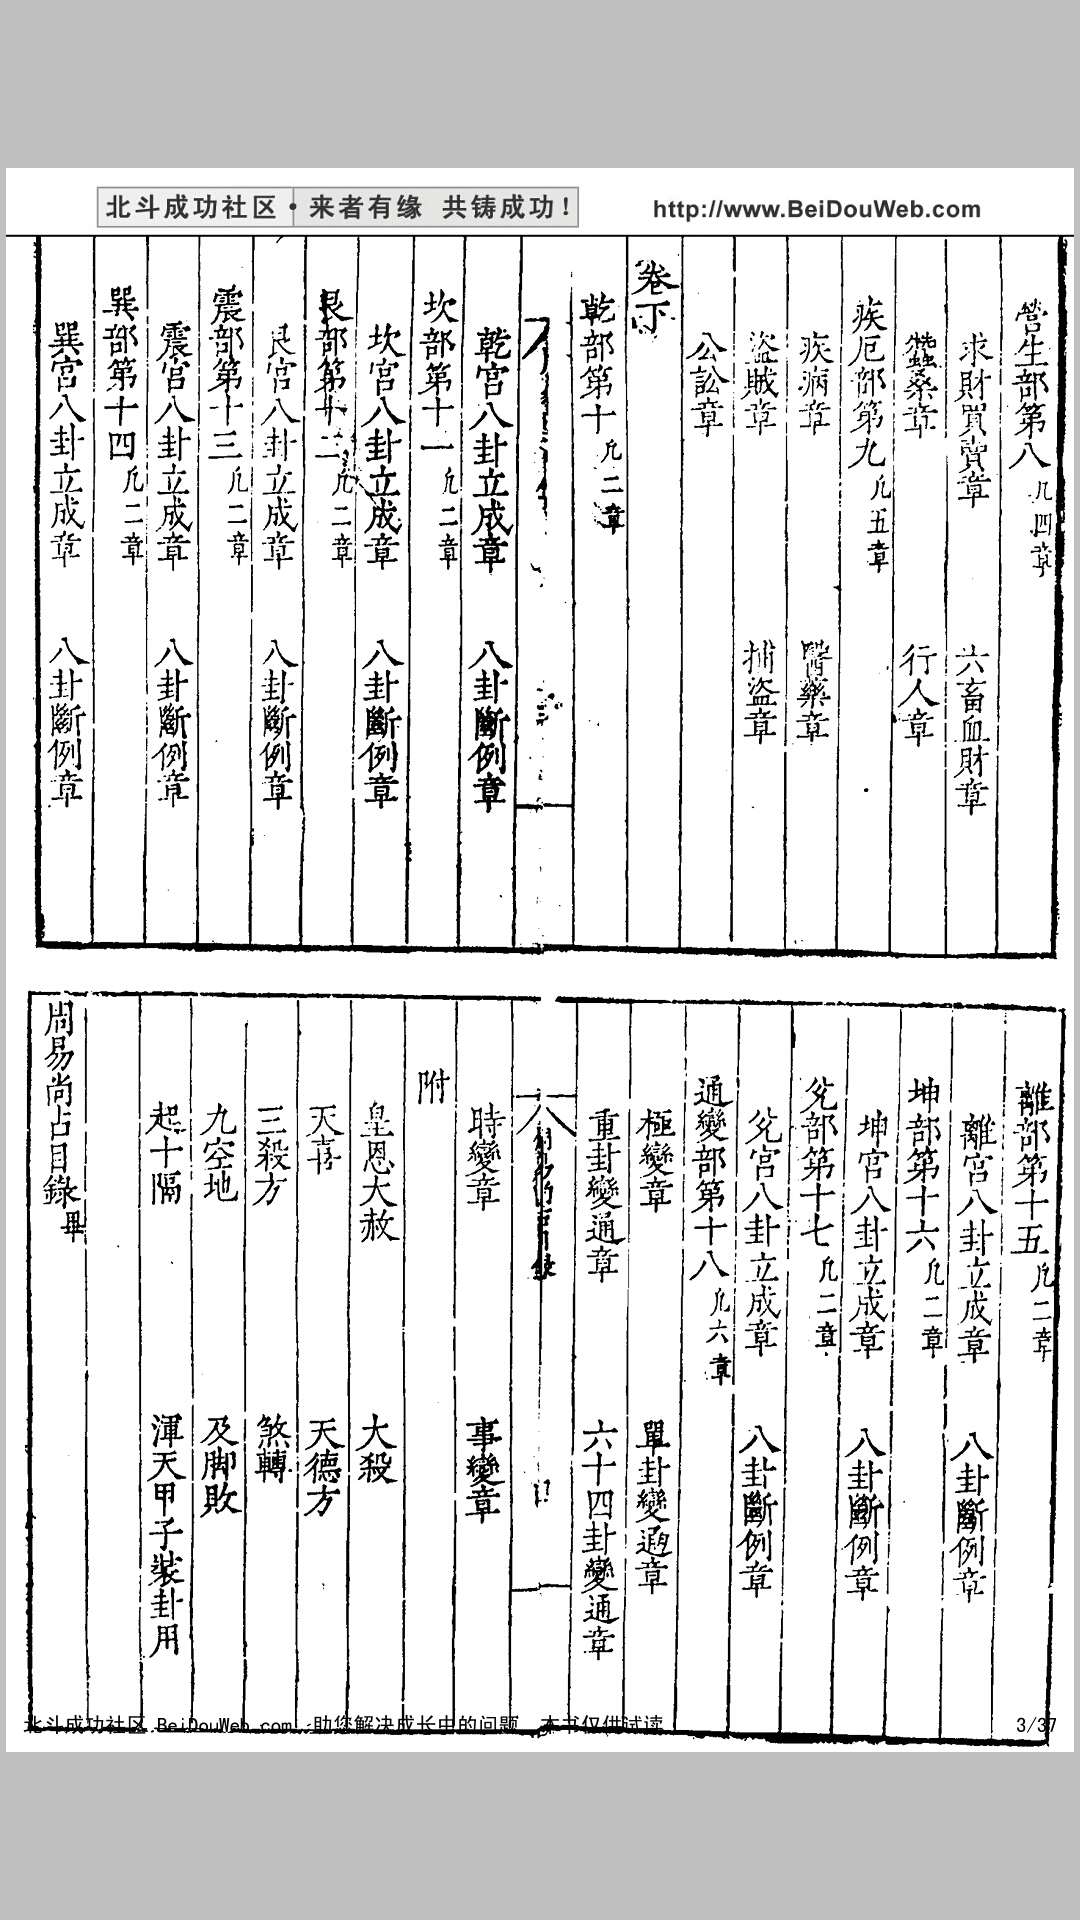 北斗成功社区·来者有缘 共铸成功！
http://www.BeiDouWeb.com
營生部第八 凢四章
求財買賣章 六畜血財章
蠶桑章 行人章
疾厄部第九 凢五章
疾病章 醫藥章
盜賊章 捕盜章
公訟章
卷下
乾部第十 凢二章
乾宮八卦立成章 八卦斷例章
坎部第十一 凢二章
坎宮八卦立成章 八卦斷例章
艮部第十二 凢二章
艮宮八卦立成章 八卦斷例章
震部第十三 凢二章
震宮八卦立成章 八卦斷例章
巽部第十四 凢二章
巽宮八卦立成章 八卦斷例章
離部第十五 凢二章
離宮八卦立成章 八卦斷例章
坤部第十六 凢二章
坤宮八卦立成章 八卦斷例章
兊部第十七 凢二章
兊宮八卦立成章 八卦斷例章
通變部第十八 凢六章
極變章 單卦變通章
重卦變通章 六十四卦變通章
八
時變章 事變章
附
皇恩大赦 大殺
天喜 天德方
三殺方 煞轉
九空地 及脚敗
起十隔 渾天甲子裝卦用
周易尚占目錄畢
北斗成功社区 BeiDouWeb.com 助您解决成长中的问题 本书仅供试读
3/37